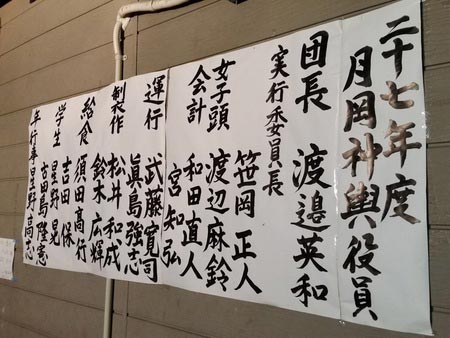 二十七年度
月岡神輿役員
団長 渡邉英和
実行委員長
笹岡正人
女子頭 渡辺麻鈴
会計 和田直人
宮知弘
運行 武藤寛司
眞島強志
製衣作 松井和成
鈴木広輝
給食 須田高行
吉田保
学生 星野晃
吉田島隆憲
年行事 星野高志